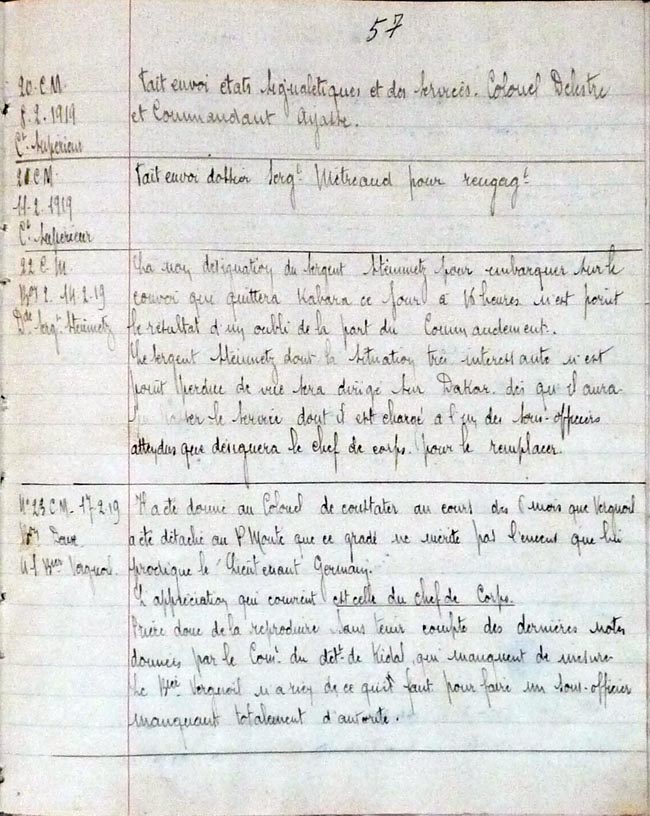 57
20. C.M.
8. 2. 1919
Ct Supérieur
Fait envoi états signalétiques et des services. Colonel Delestre
et Commandant Ayasse.
21 C M.
11. 2. 1919
Ct Supérieur
Fait envoi dossier Sergt Métreaud pour rengagt
22 C. M.
14. 2. 19
Sergt Steinmetz
La non désignation du Sergent Steinmetz pour embarquer sur le
convoi qui quittera Kabara ce jour à 16 heures n'est point
le résultat d'un oubli de la part du Commandement.
Le Sergent Steinmetz dont la situation très intéressante n'est
point perdue de vue sera dirigé sur Dakar dès qu'il aura
passer le service dont il est chargé à l'un des sous-officiers
attendus que désignera le chef de corps pour le remplacer.
No 23 C M. 17-2.19
Bier Vergnoil.
Il a été donné au Colonel de constater au cours des 6 mois que Vergnoil
a été détaché au P. Monté que ce gradé ne mérite pas l'encens que lui
prodigue le Lieutenant Germain.
L'appréciation qui convient est celle du chef de Corps.
Prière donc de la reproduire sans tenir compte des dernières notes
données par le Comt du détt de Kidal, qui manquent de mesure
Le Bier Vergnoil n'a rien de ce qu'il faut pour faire un sous-officier
manquant totalement d'autorité.